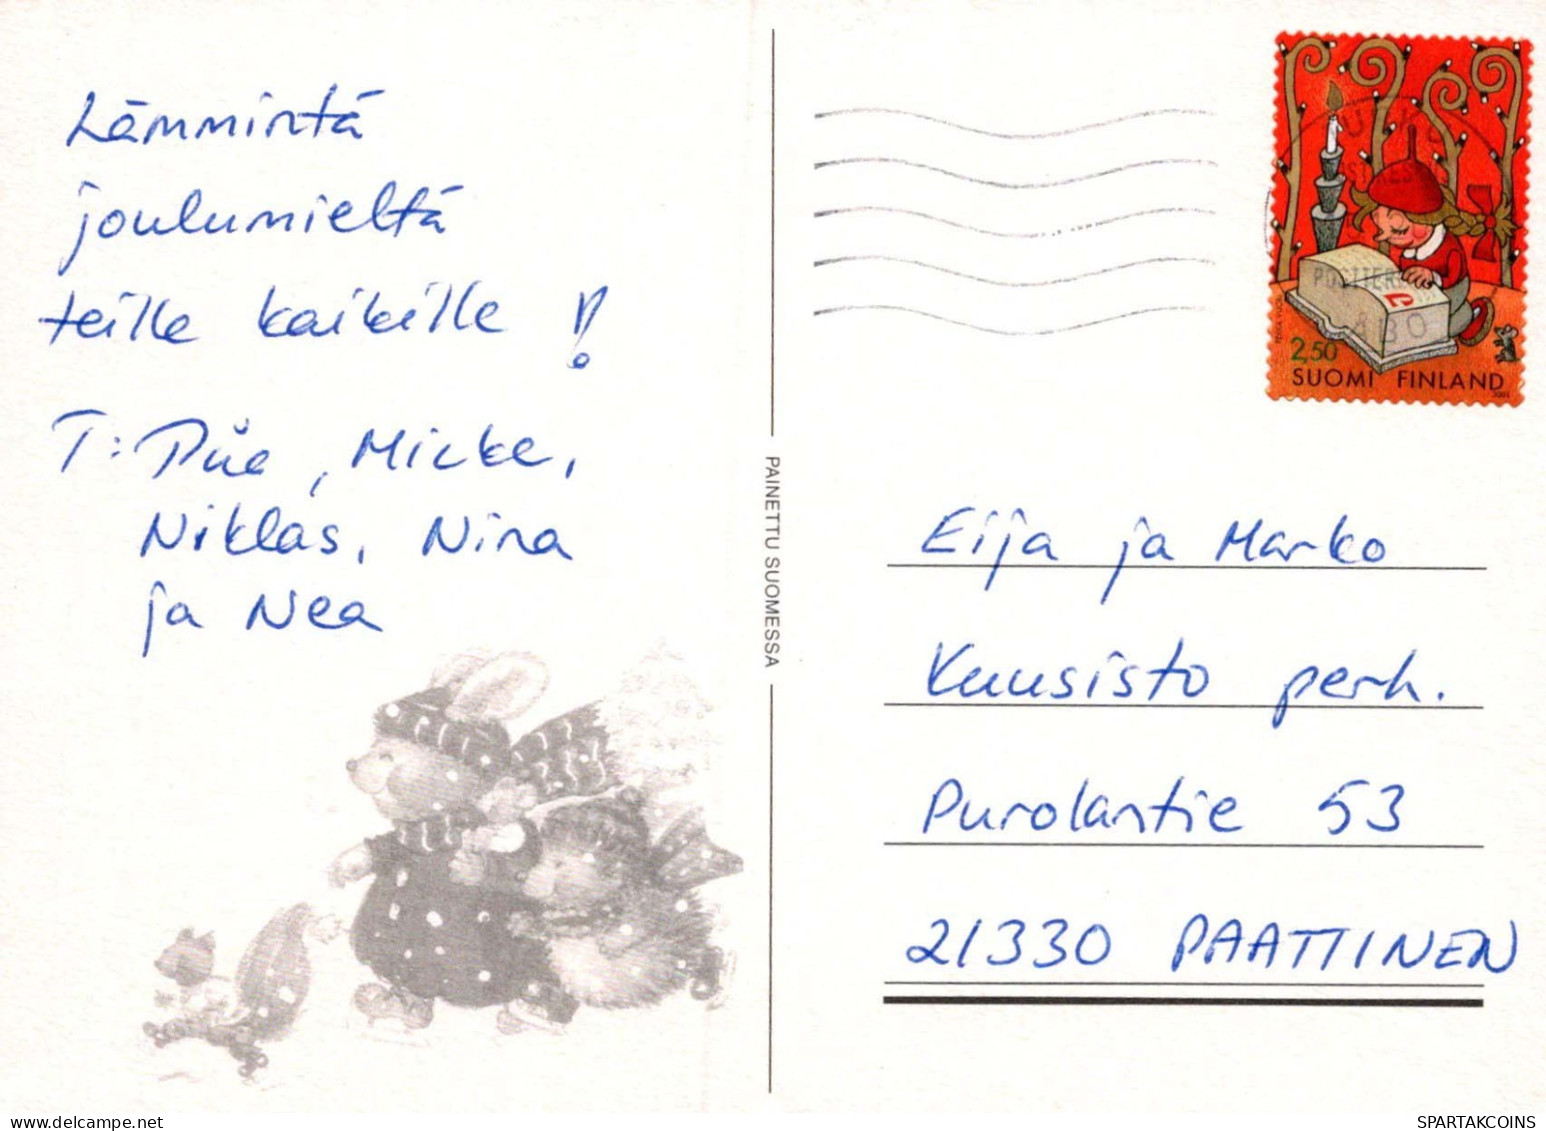 Lämmintä
joulumieltä
teille kaikille !
T: Piia, Micke,
Niklas, Nina
ja Nea
PAINETTU SUOMESSA
2,50
SUOMI FINLAND
2001
Eija ja Marko
Kuusisto perh.
Purolantie 53
21330 PAATTINEN
SPARTAKCOINS